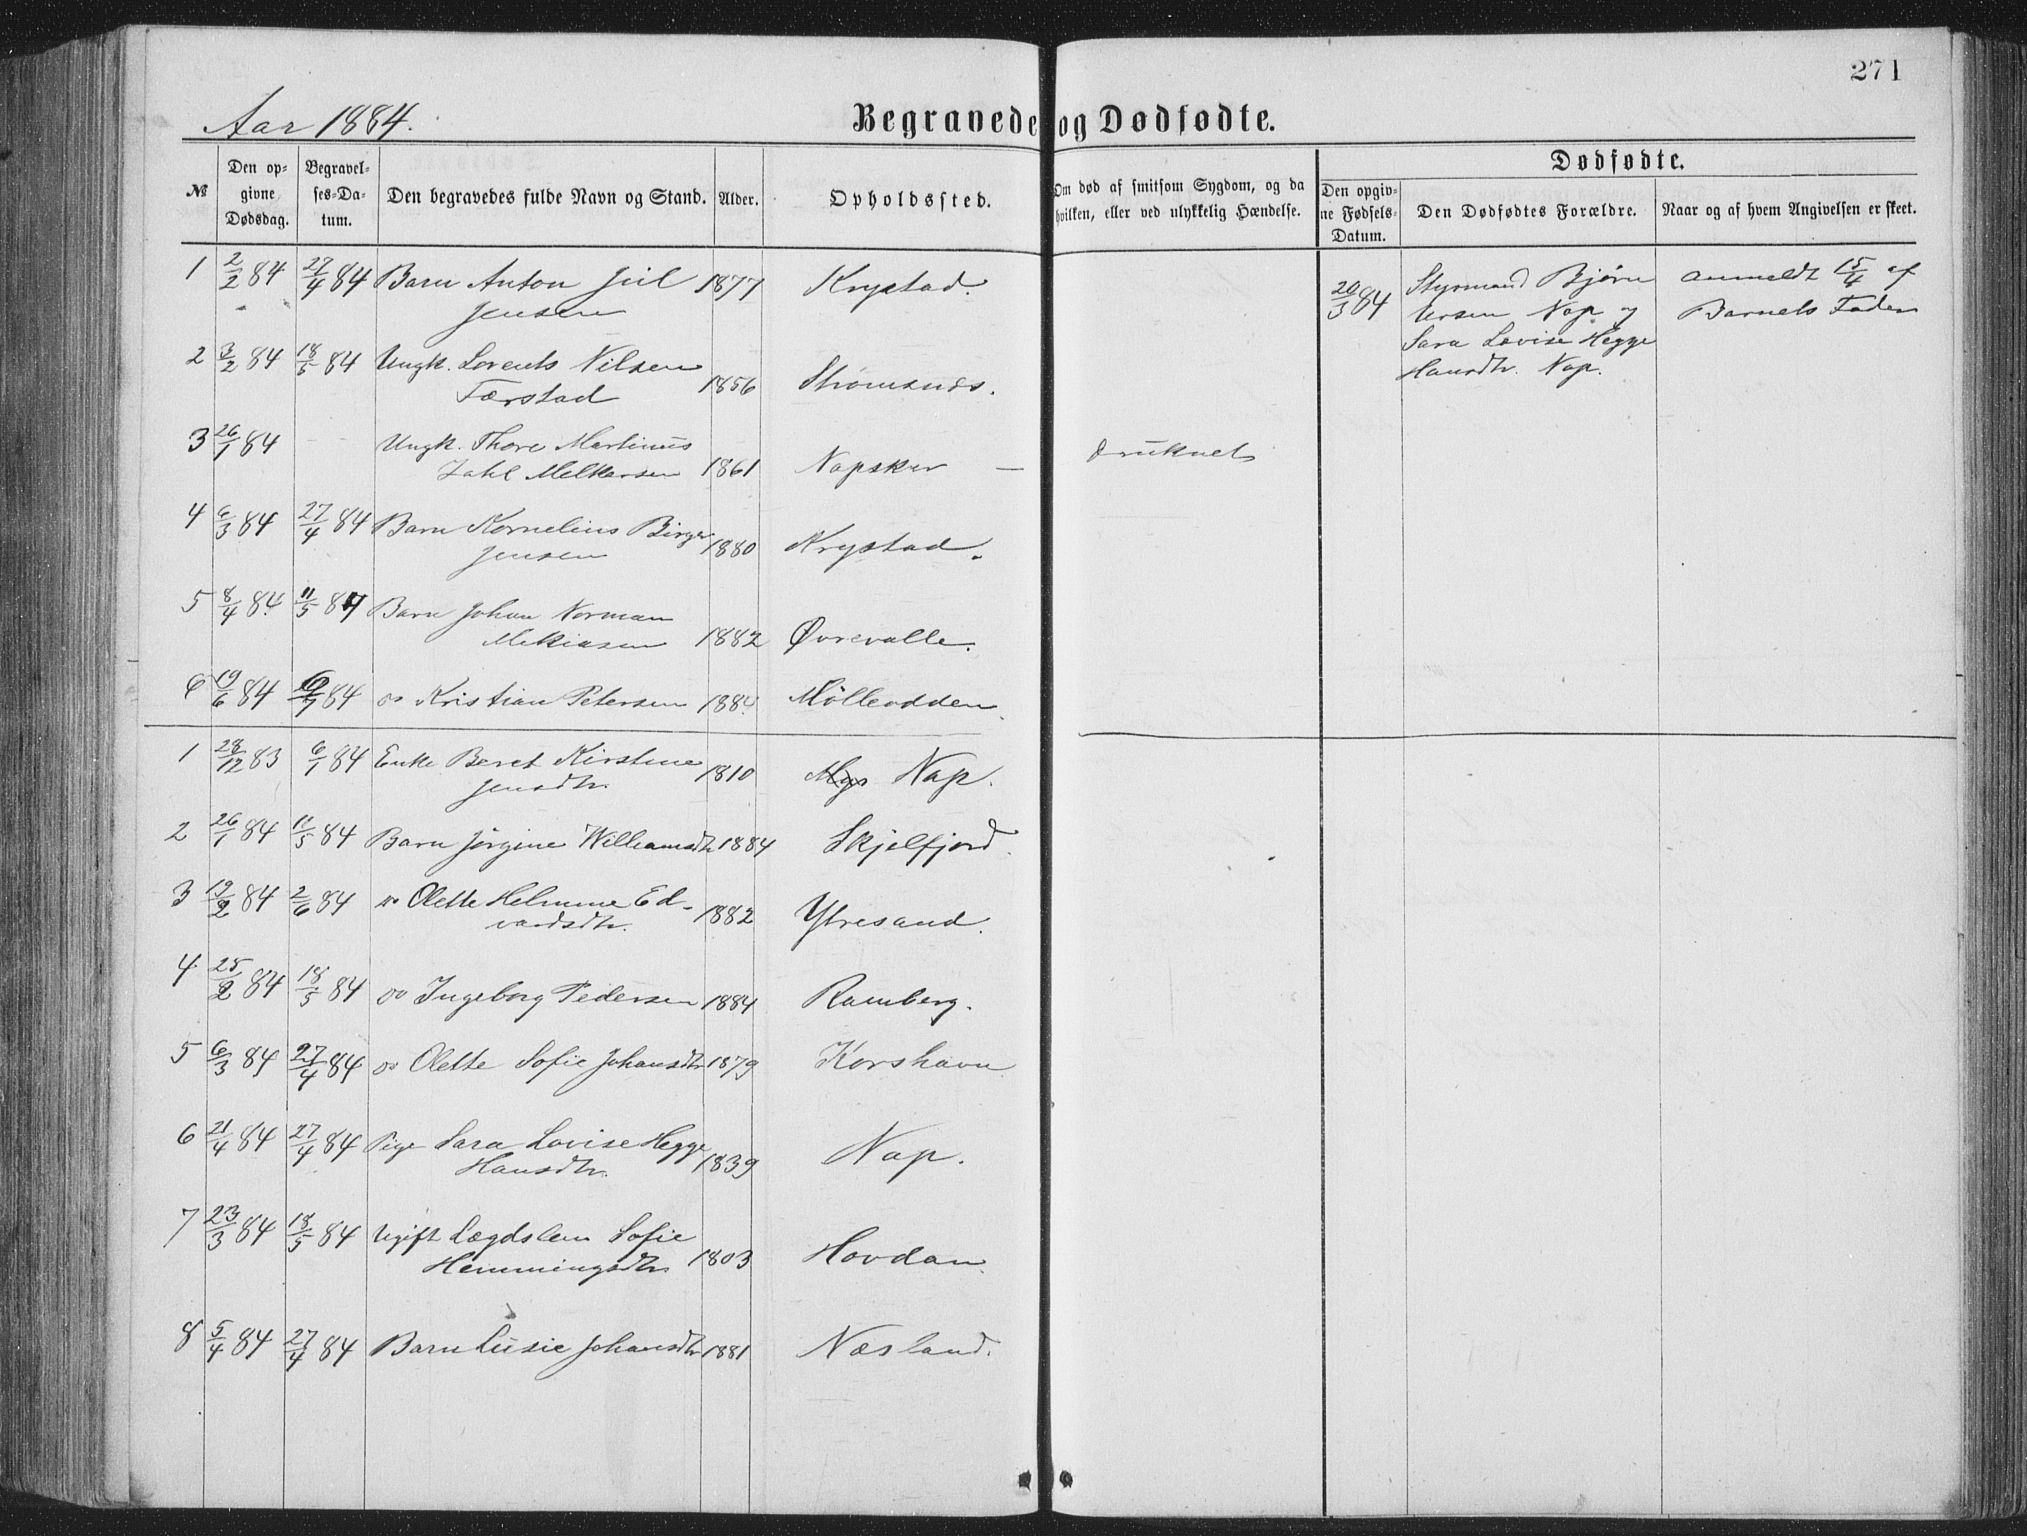 271
Aar 1884.
Begravede og Dødfødte.
№
Den op-
givne
Dødsdag.
Begravel-
ses-Da-
tum.
Den begravedes fulde Navn og Stand.
Alder.
Opholdssted.
Om død af smitsom Sygdom, og da
hvilken, eller ved ulykkelig Hændelse.
Dødfødte.
Den opgiv-
ne Fødsels-
Datum.
Den Dødfødtes Forældre.
Naar og af hvem Angivelsen er skeet.
1 2/2 84 27/4 84 Barn Anton Jul
Jensen 1877 Krystad.
20/3 84 Styrmand Bjørn
Nap og
Sara Lovise Hegge
Hansdtr. Nap.
anmeldt 15/4 af
Barnets Fader
2 3/2 84 18/5 84 Ungk. Lorents Nilsen
Færstad 1856 Strømsnes.
3 26/1 84 Ungk. Thore Martinus
Zahl Melkersen 1861 Napsker — druknet
4 6/3 84 27/4 84 Barn Kornelius Birger
Jensen 1880 Krystad.
5 8/4 84. 11/5 84 Barn Johan Norman
Mekiasen 1882 Øvrevalle.
6 19/6 84 6/7 84 do Kristian Petersen 1884. Mølleodden.
1 28/12 83 6/1 84 Enke Beret Kirstine
Jensdtr. 1810 Nap.
2 26/1 84 11/5 84 Barn Jørgine Williamsdtr 1884 Skjelfjord.
3 19/2 84 2/6 84 do Olette Helmine Ed-
vardsdtr. 1882 Ytresand.
4 25/2 84 18/5 84 do Ingeborg Pedersen 1884 Ramberg.
5 6/3 84 27/4 84 do Olette Sofie Johansdtr 1879 Korshavn
6 21/4 84 27/4 84 Pige Sara Lovise Hegge
Hansdtr. 1839 Nap.
7 23/3 84 18/5 84 Ugift Lægdslem Sofie
Hemmingsdtr 1803 Hovdan.
8 5/4 84 27/4 84 Barn Lusie Johansdtr 1881 Næsland.